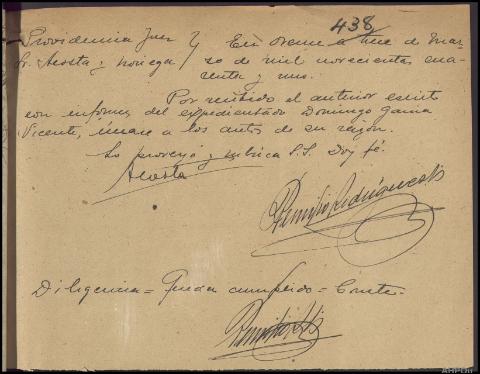 438
Providencia Juez } En Orense a trece de Mar-
Sr. Acosta y Noriega } zo de mil novecientos cua-
renta y uno.
Por recibido el anterior escrito
con informe del expedientado Domingo García
Vicente, únase a los autos de su razón.
Lo proveyó y rubrica S.S. Doy fé.
Acosta
Remigio Rodríguez
Diligencia = Queda cumplido = Conste.
Remigio
AHPOu